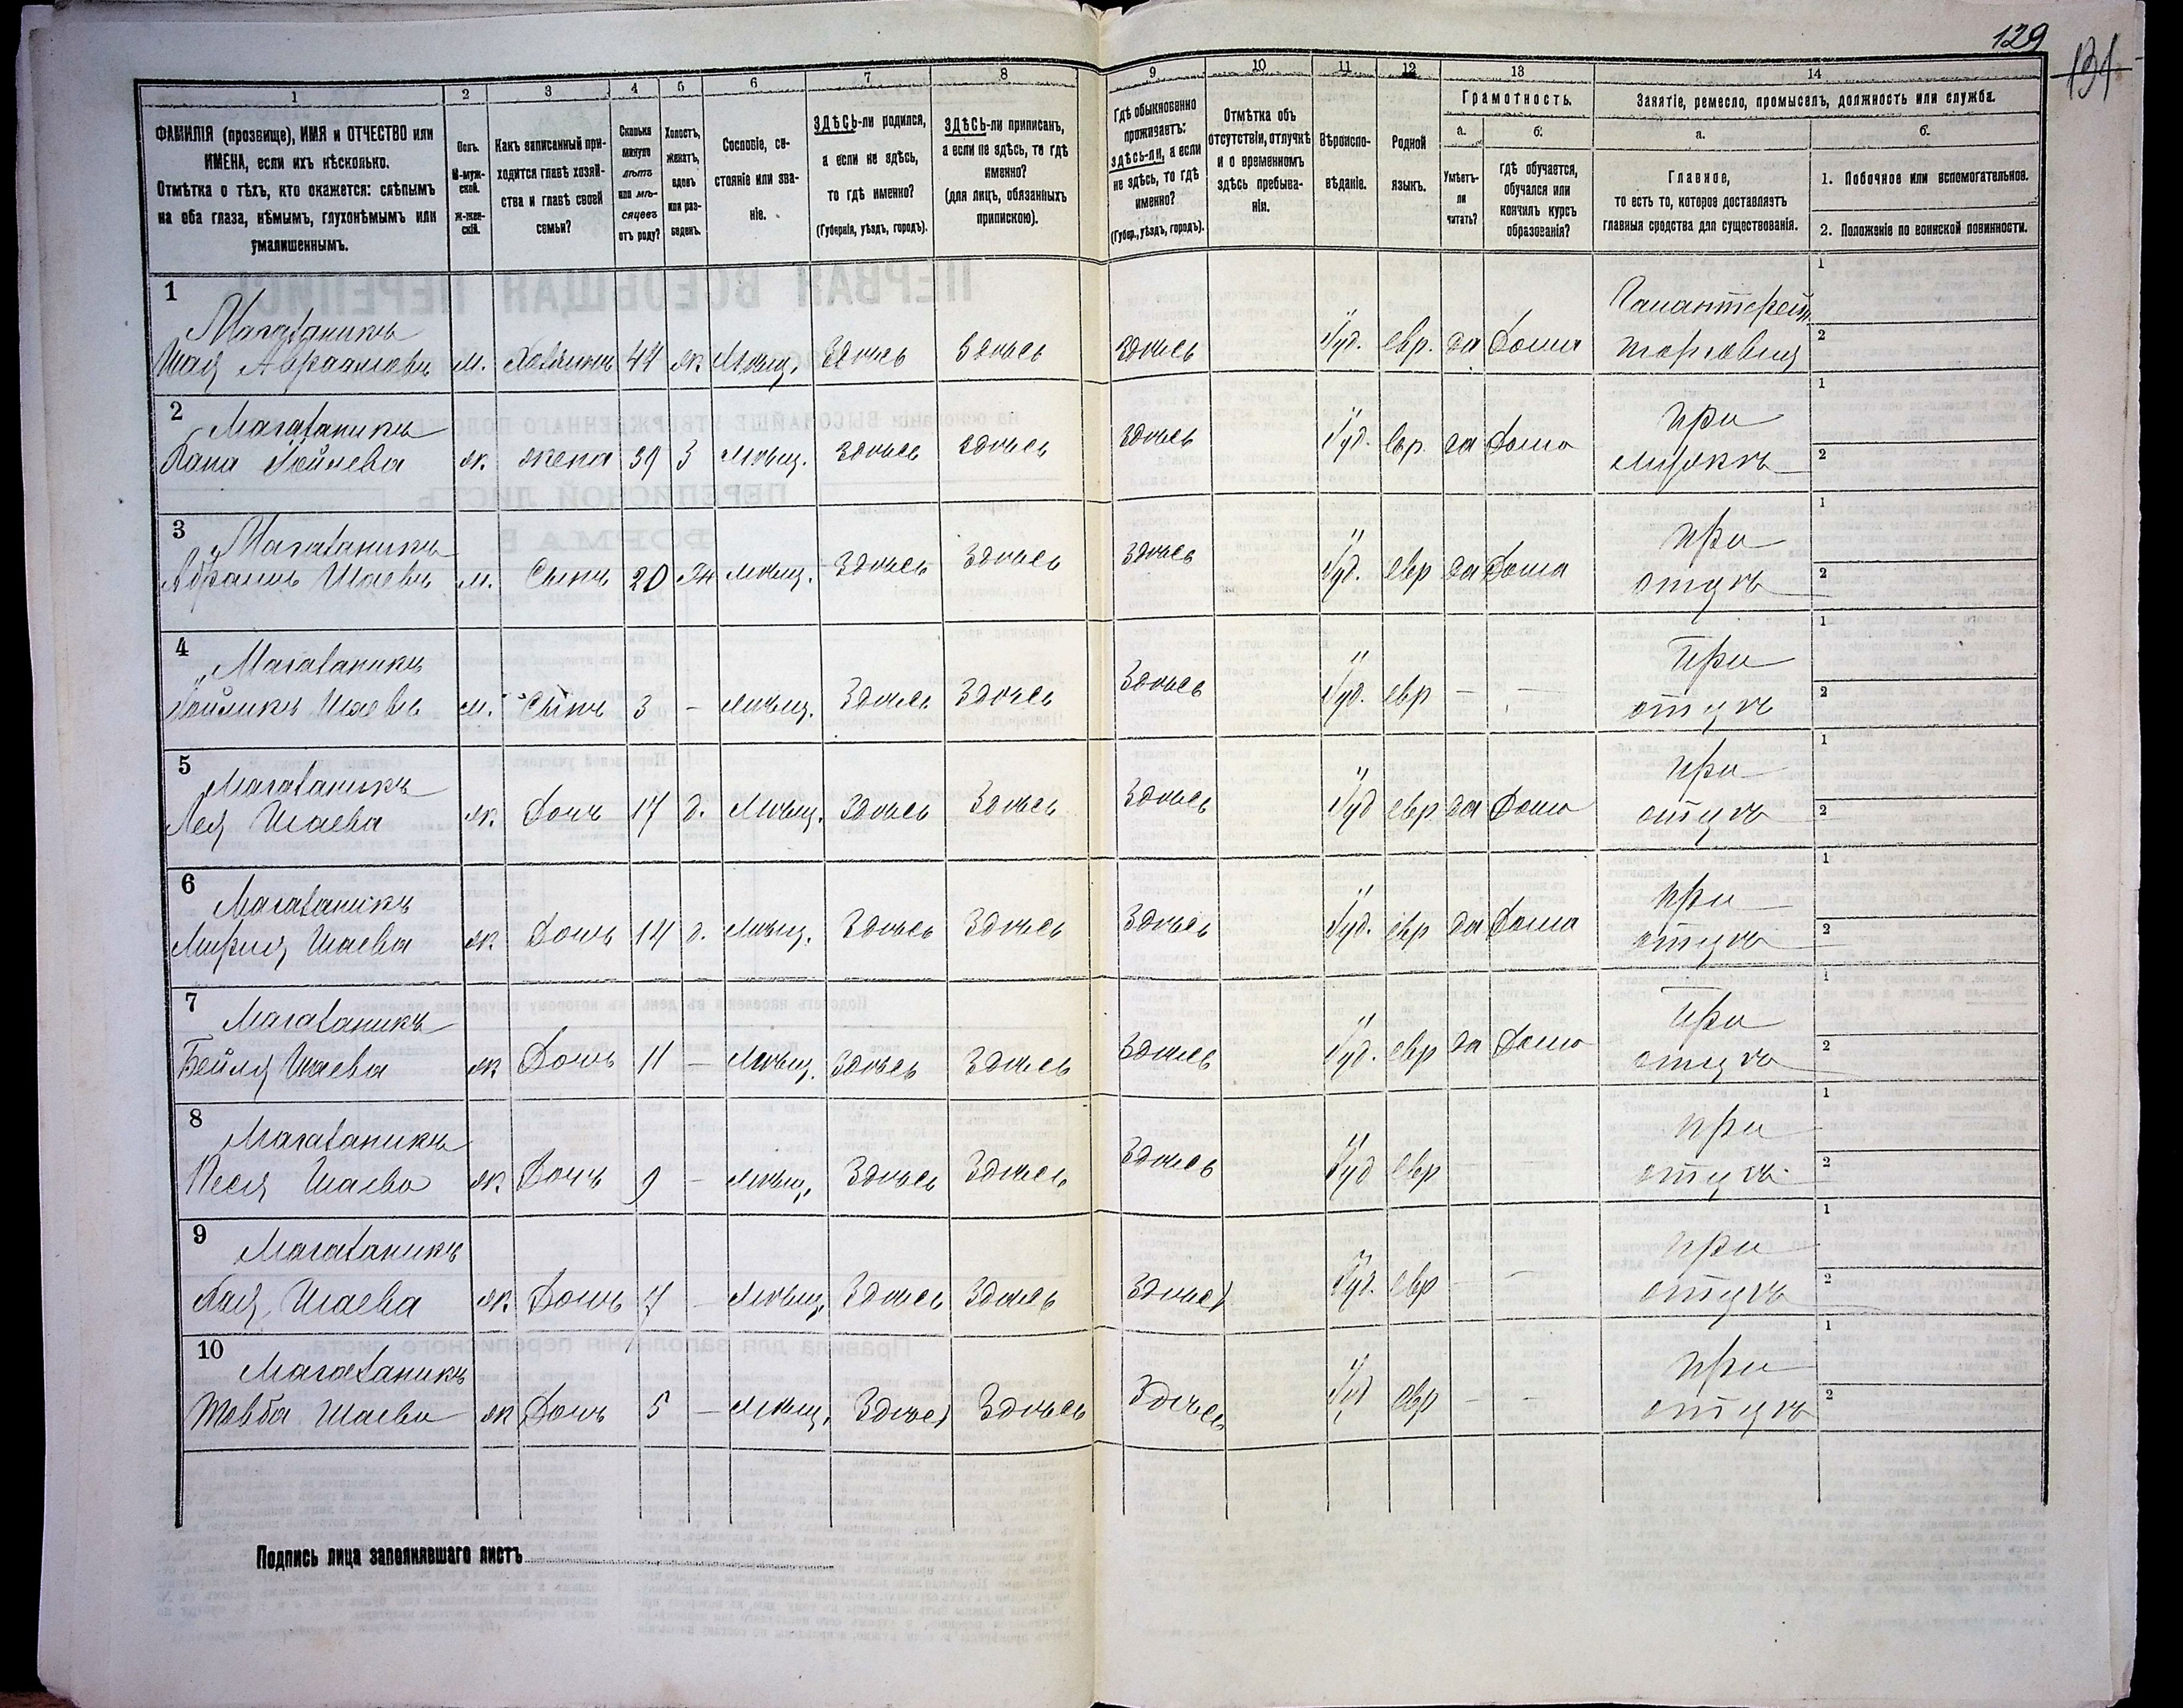 129
131
1 2 3 4 5 6 7 8 9 10 11 12 13 14
ФАМИЛІЯ (прозвище), ИМЯ и ОТЧЕСТВО или ИМЕНА, если ихъ нѣсколько.
Отмѣтка о тѣхъ, кто окажется: слѣпымъ на оба глаза, нѣмымъ, глухонѣмымъ или умалишеннымъ.
Полъ. М-мужской. Ж-женскій.
Какъ записанный приходится главѣ хозяйства и главѣ своей семьи?
Сколько минуло лѣтъ или мѣсяцевъ отъ роду?
Холостъ, женатъ, вдовъ или разведенъ.
Сословіе, состояніе или званіе.
ЗДѢСЬ-ли родился, а если не здѣсь, то гдѣ именно?
(Губернія, уѣздъ, городъ).
ЗДѢСЬ-ли приписанъ, а если не здѣсь, то гдѣ именно?
(для лицъ, обязанныхъ припискою).
Гдѣ обыкновенно проживаетъ: здѣсь-ли, а если не здѣсь, то гдѣ именно?
(Губер., уѣздъ, городъ).
Отмѣтка объ отсутствіи, отлучкѣ и о временномъ здѣсь пребываніи.
Вѣроисповѣданіе.
Родной языкъ.
Грамотность.
а. Умѣетъ-ли читать?
б. Гдѣ обучается, обучался или кончилъ курсъ образованія?
Занятіе, ремесло, промыселъ, должность или служба.
а. Главное, то есть то, которое доставляетъ главныя средства для существованія.
б.
1. Побочное или вспомогательное.
2. Положеніе по воинской повинности.
1 Магазаникъ
Шая Абрамовъ м. Хозяинъ 44 ж Мѣщ. Здѣсь Здѣсь Здѣсь Іуд. евр. да Дома Галантерейн. торговля 1 2
2 Магазаникъ
Хана Лейзева ж. жена 39 З Мѣщ. Здѣсь Здѣсь Здѣсь Іуд. евр. да Дома при мужѣ 1 2
3 Магазаникъ
Абрамъ Шаевъ м. Сынъ 20 Мѣщ. Здѣсь Здѣсь Здѣсь Іуд. евр да Дома при отцѣ 1 2
4 Магазаникъ
Шаевъ м. Сынъ 3 – Мѣщ. Здѣсь Здѣсь Здѣсь Іуд. евр – – При отцѣ 1 2
5 Магазаникъ
Лея Шаева ж. Дочь 17 д. Мѣщ. Здѣсь Здѣсь Здѣсь Іуд евр да Дома при отцѣ 1 2
6 Магазаникъ
Мирля Шаева ж Дочь 14 д. Мѣщ. Здѣсь Здѣсь Здѣсь Іуд. евр да Дома при отцѣ 1 2
7 Магазаникъ
Бейля Шаева ж Дочь 11 – Мѣщ. Здѣсь Здѣсь Здѣсь Іуд. евр да Дома При отцѣ 1 2
8 Магазаникъ
Песя Шаева ж Дочь 9 – Мѣщ. Здѣсь Здѣсь Здѣсь Іуд евр – – при отцѣ 1 2
9 Магазаникъ
Хая Шаева ж. Дочь 7 – Мѣщ. Здѣсь Здѣсь Здѣсь Іуд. евр – – при отцѣ 1 2
10 Магазаникъ
Товба Шаева ж Дочь 5 – Мѣщ. Здѣсь Здѣсь Здѣсь Іуд евр – – при отцѣ 1 2
Подпись лица заполнявшаго листъ